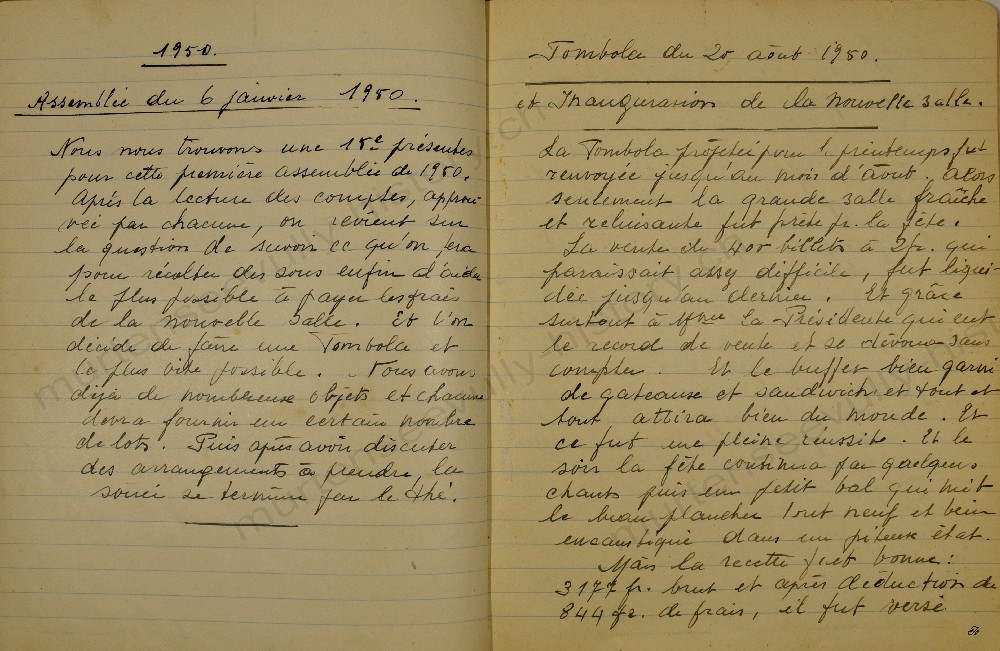 1950.
Assemblée du 6 janvier 1950.
Nous nous trouvons une 15e présentes
pour cette première assemblée de 1950.
Après la lecture des comptes, approu-
vée par chacune, on revient sur
la question de savoir ce qu'on fera
pour récolter des sous enfin d'aider
le plus possible à payer les frais
de la nouvelle salle. Et l'on
décide de faire une Tombola et
le plus vite possible. Nous avons
déjà de nombreuse objets et chacune
devra fournir un certain nombre
de lots. Puis après avoir discuter
des arrangements à prendre, la
soirée se termine par le thé.
Tombola du 20 août 1950.
et Inauguration de la nouvelle salle.
La Tombola projetée pour le printemps fut
renvoyée jusqu'au mois d'août. alors
seulement la grande salle fraîche
et reluisante fut prête pr. la fête.
La vente de 400 billets à 2 fr. qui
paraissait assez difficile, fut liqui-
dée jusqu'au dernier. Et grâce
surtout à Mme la Présidente qui eut
le record de vente et se dévoua sans
compter. Et le buffet bien garni
de gateaux et sandwich et tout et
tout attira bien du monde. Et
ce fut une pleine réussite. Et le
soir la fête continua par quelques
chants puis un petit bal qui mit
le beau plancher tout neuf et bien
encaustiqué dans un piteux état.
Mais la recette fut bonne:
3177 fr. brut et après déduction de
844 fr. de frais, il fut versé
murtenseevully.ch